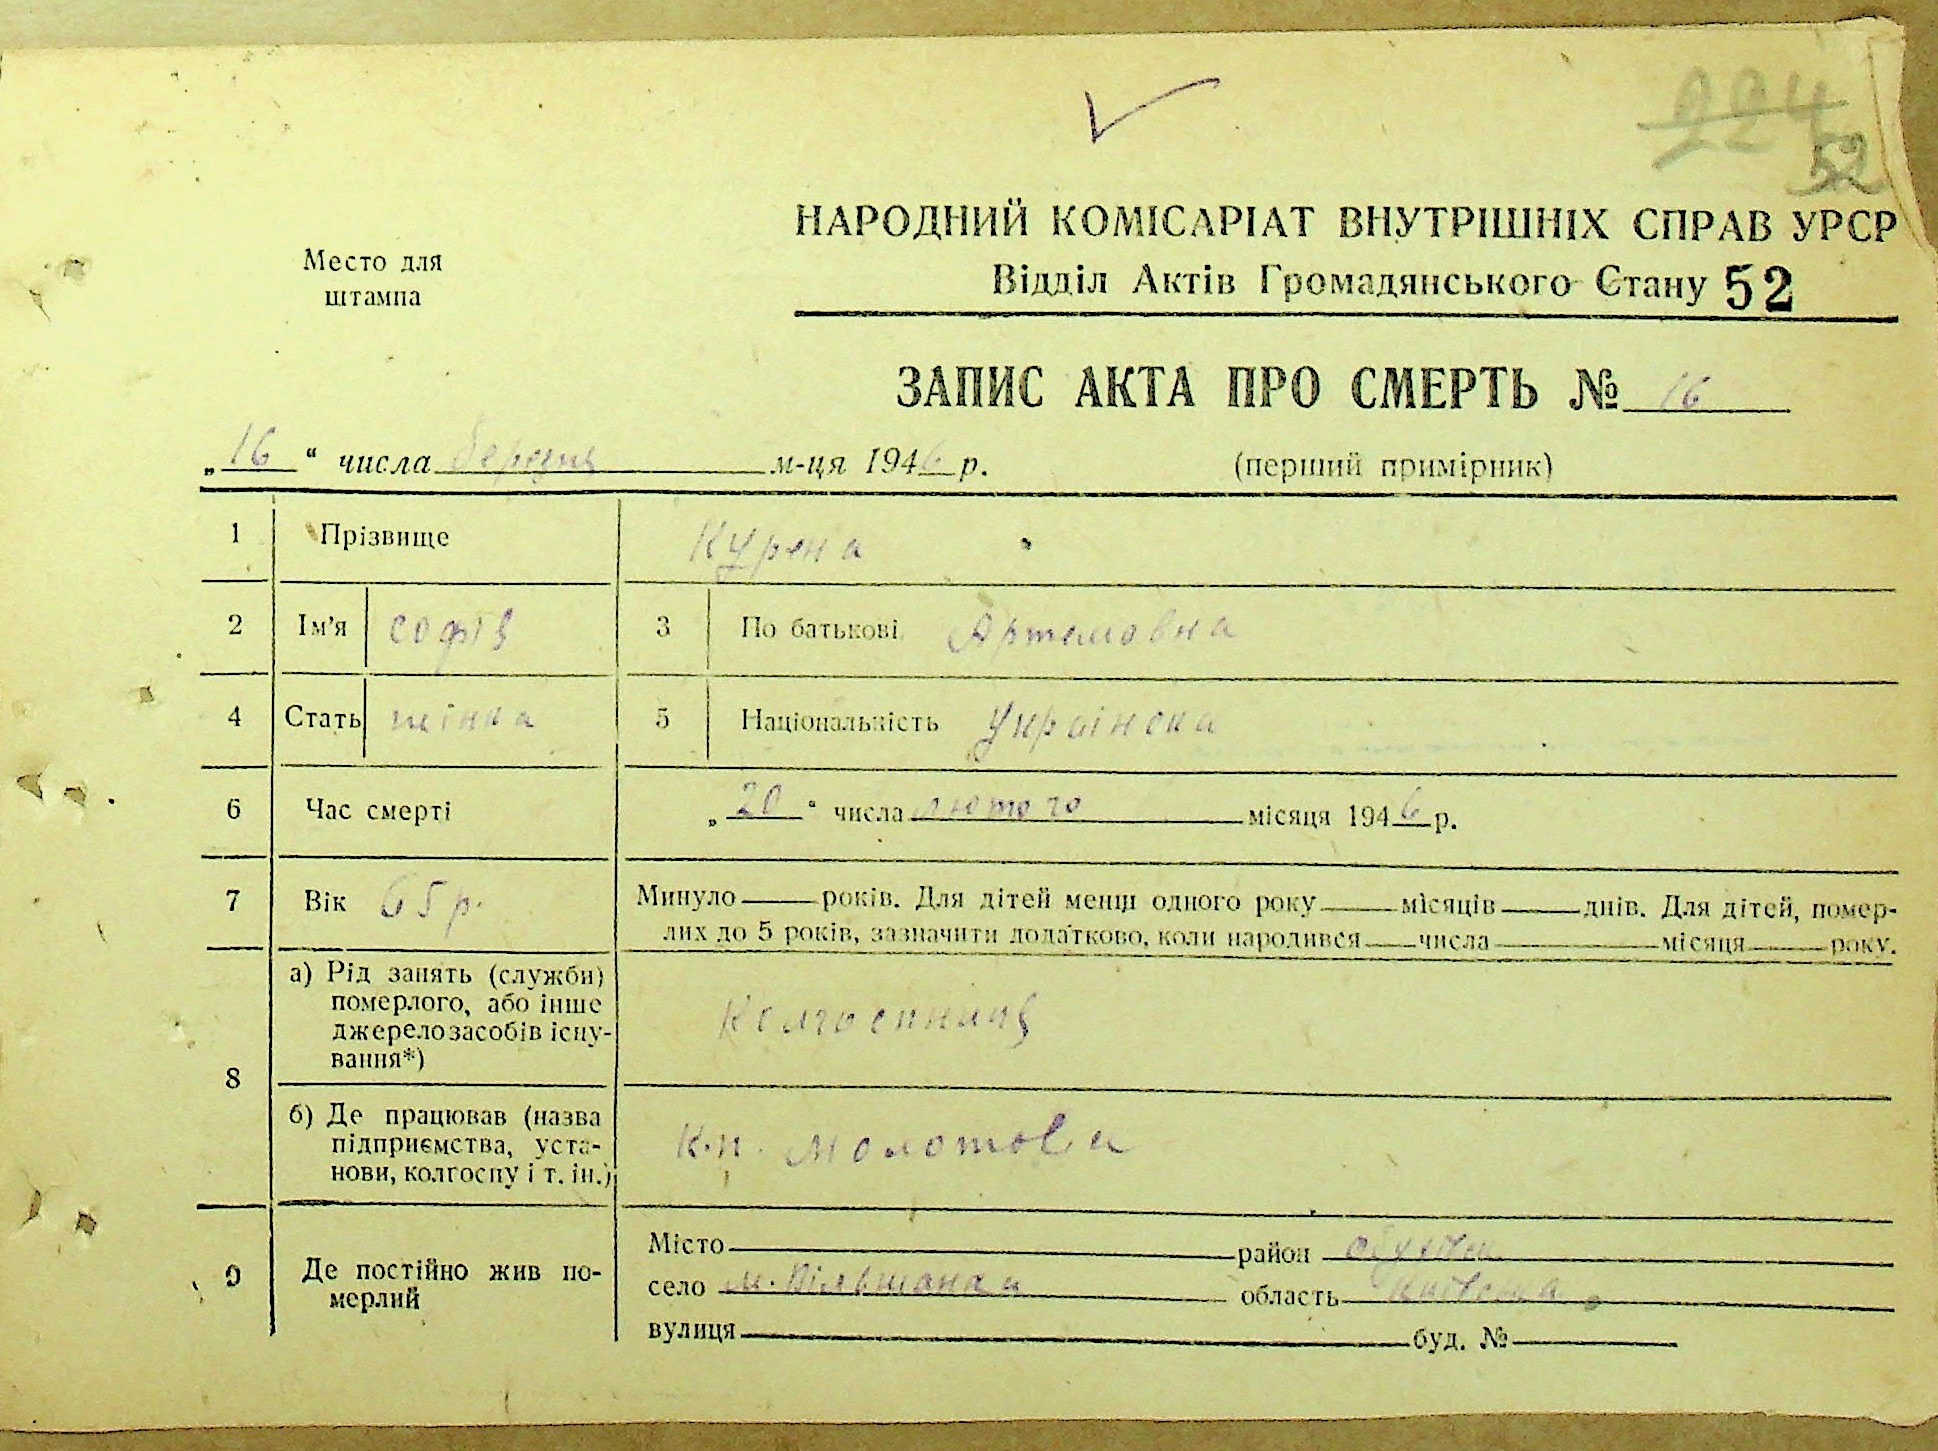 224
52
НАРОДНИЙ КОМІСАРІАТ ВНУТРІШНІХ СПРАВ УРСР
Место для штампа
Відділ Актів Громадянського Стану 52
ЗАПИС АКТА ПРО СМЕРТЬ № 16
„16“ числа березня м-ця 1946 р. (перший примірник)
1 Прізвище Курена
2 Ім'я Софія 3 По батькові Артемовна
4 Стать жінка 5 Національність Українска
6 Час смерті „20“ числа лютого місяця 1946 р.
7 Вік 65 р. Минуло — років. Для дітей менш одного року — місяців — днів. Для дітей, помер-
лих до 5 років, зазначити додатково, коли народився — числа — місяця — року.
8 а) Рід занять (служби)
померлого, або інше
джерело засобів існу-
вання*)
Колгоспниця
б) Де працював (назва
підприємства, уста-
нови, колгоспу і т. ін.)
К-п. Молотова
9 Де постійно жив по-
мерлий
Місто район Обухівськ
село м. Вільшанка область Київська
вулиця буд. №